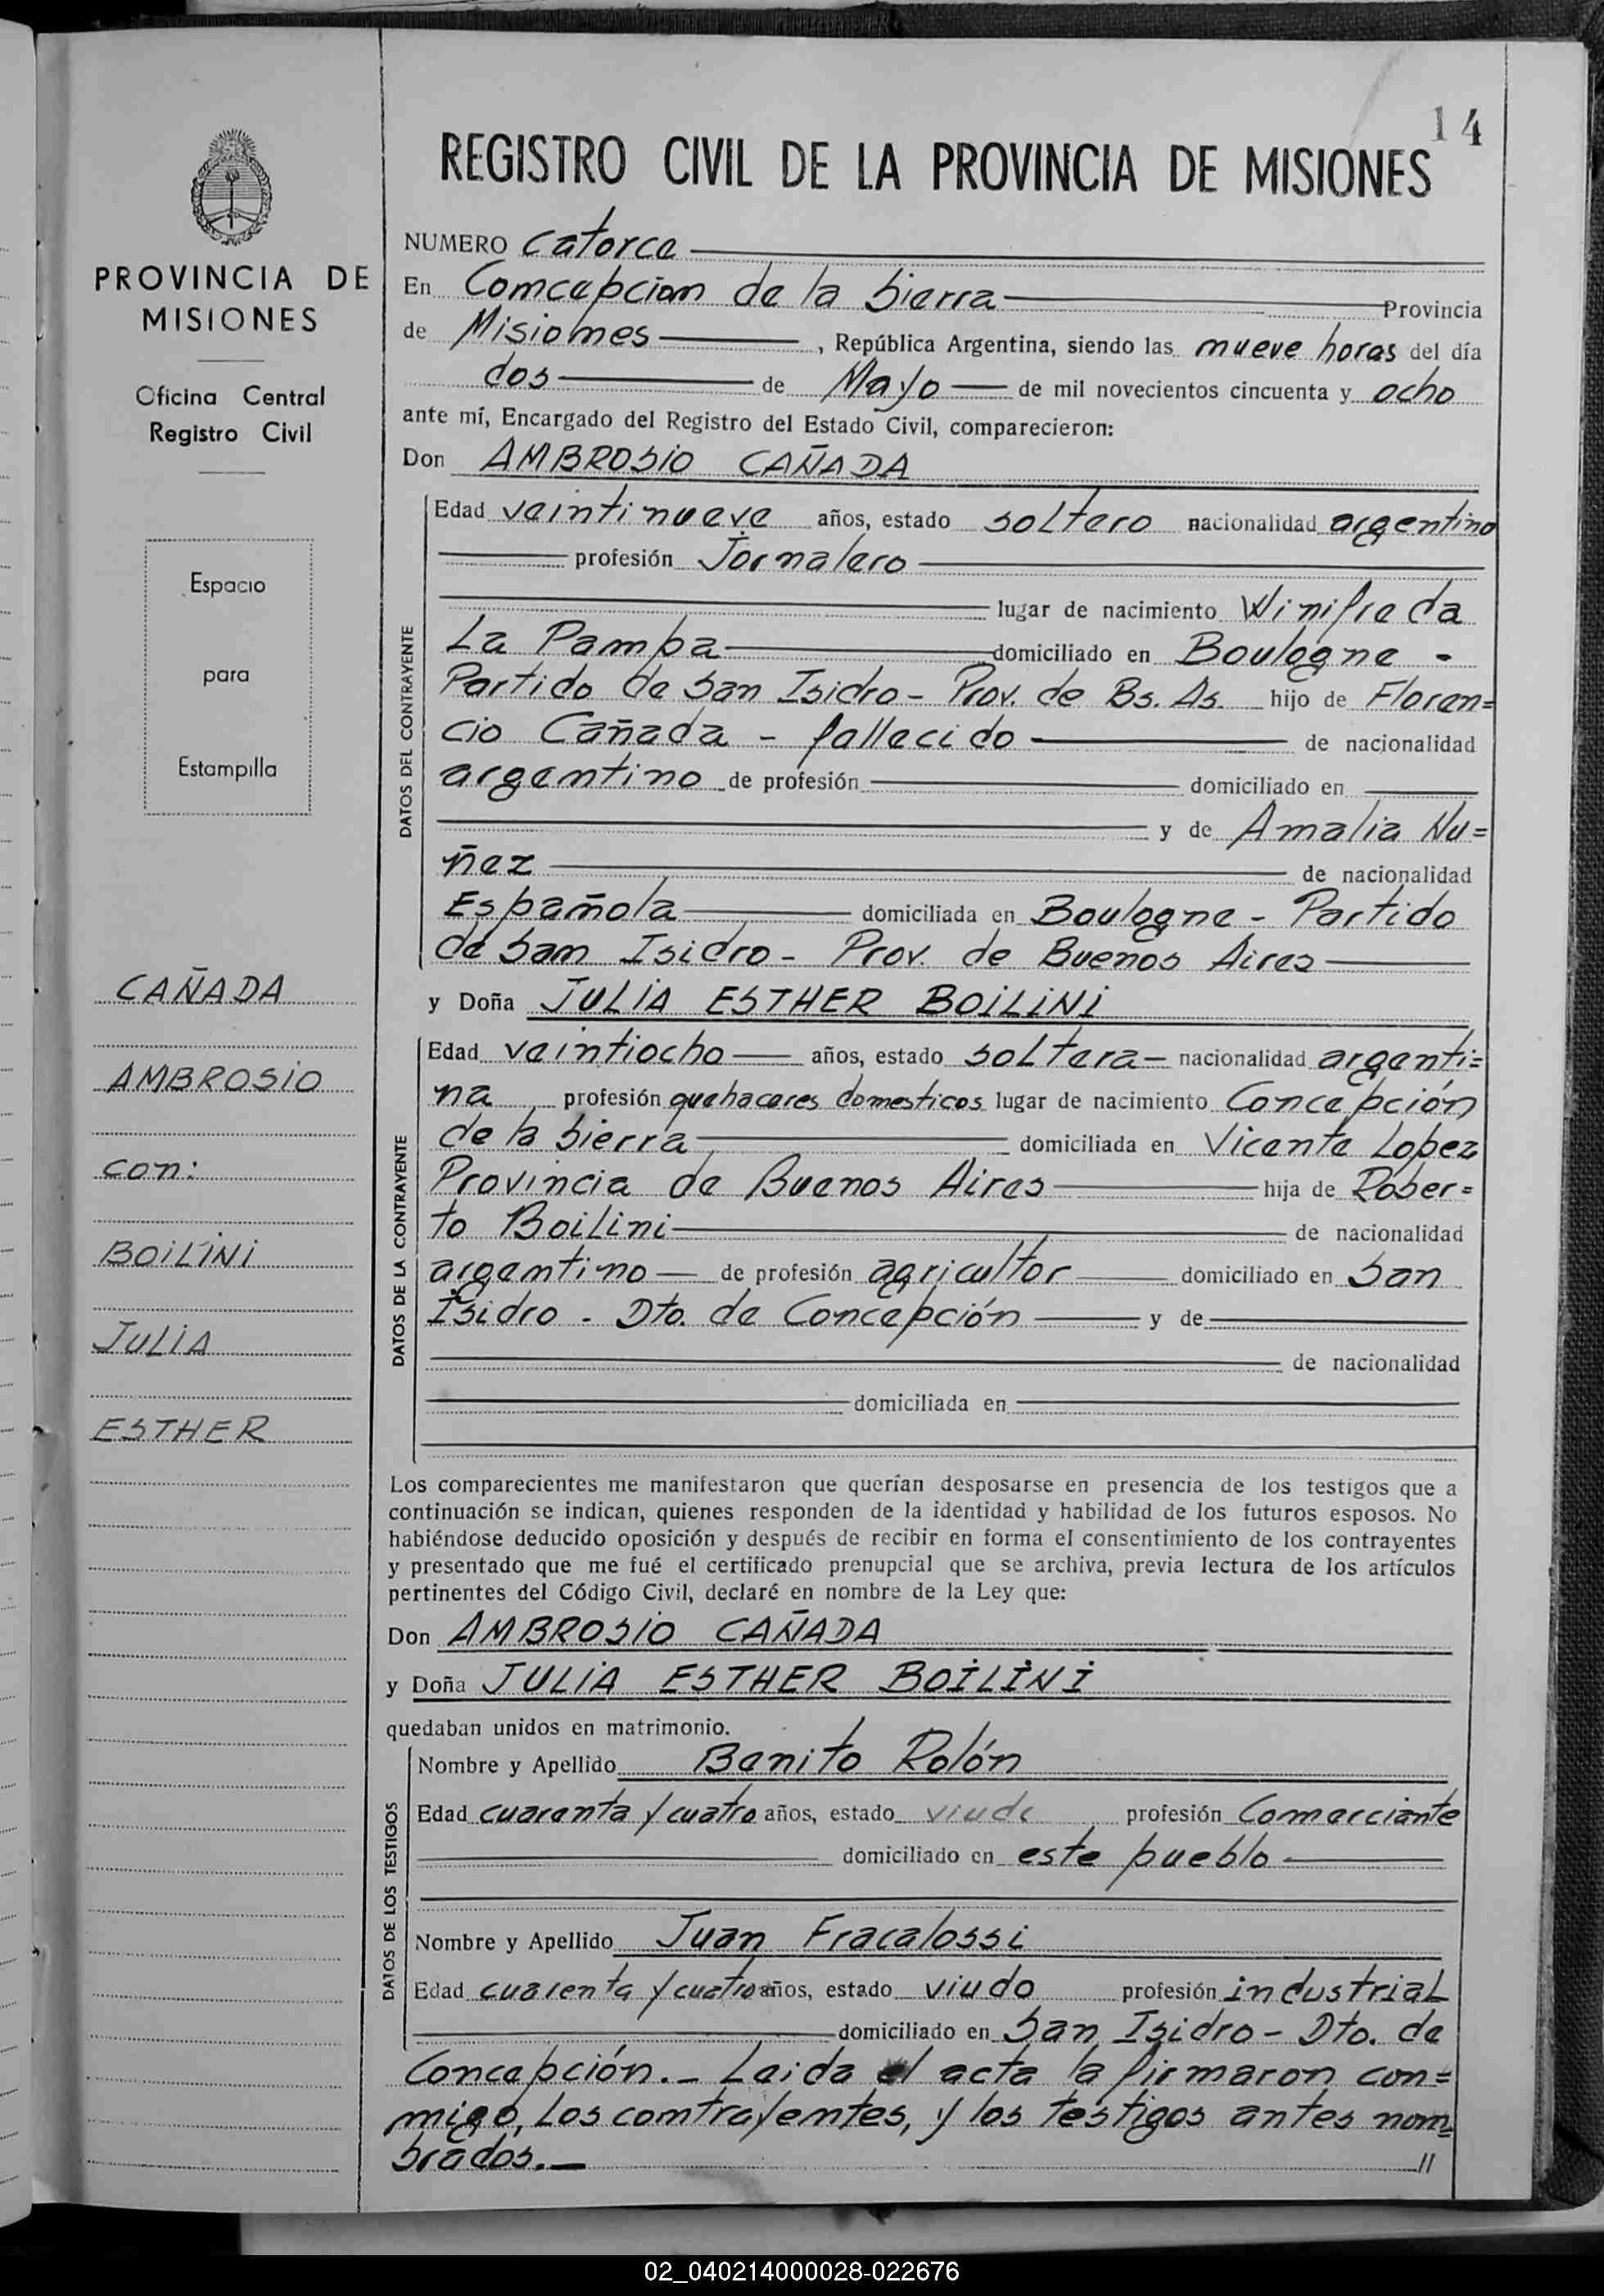 14
REGISTRO CIVIL DE LA PROVINCIA DE MISIONES
PROVINCIA DE
MISIONES
Oficina Central
Registro Civil
Espacio
para
Estampilla
CAÑADA
AMBROSIO
con:
BOILINI
JULIA
ESTHER
NUMERO Catorce
En Comcepciom de la Sierra Provincia
de Misiomes, República Argentina, siendo las mueve horas del día
dos de Mayo de mil novecientos cincuenta y ocho
ante mí, Encargado del Registro del Estado Civil, comparecieron:
Don AMBROSIO CAÑADA
DATOS DEL CONTRAYENTE
Edad veintinueve años, estado soltero nacionalidad argentino
profesión Jornalero
lugar de nacimiento Winifreda
La Pampa domiciliado en Boulogne -
Partido de San Isidro - Prov. de Bs. As. hijo de Floren=
cio Cañada - fallecido de nacionalidad
argentino de profesión domiciliado en
y de Amalia Nu=
ñez de nacionalidad
Española domiciliada en Boulogne - Partido
de Sam Isidro - Prov. de Buenos Aires
y Doña JULIA ESTHER BOILINI
DATOS DE LA CONTRAYENTE
Edad veintiocho años, estado soltera nacionalidad argenti=
na profesión quehaceres domesticos lugar de nacimiento Concepción
de la Sierra domiciliada en Vicente Lopez
Provincia de Buenos Aires hija de Rober=
to Boilini de nacionalidad
argentino de profesión agricultor domiciliado en San
Isidro - Dto. de Concepción y de
de nacionalidad
domiciliada en
Los comparecientes me manifestaron que querían desposarse en presencia de los testigos que a
continuación se indican, quienes responden de la identidad y habilidad de los futuros esposos. No
habiéndose deducido oposición y después de recibir en forma el consentimiento de los contrayentes
y presentado que me fué el certificado prenupcial que se archiva, previa lectura de los artículos
pertinentes del Código Civil, declaré en nombre de la Ley que:
Don AMBROSIO CAÑADA
y Doña JULIA ESTHER BOILINI
quedaban unidos en matrimonio.
DATOS DE LOS TESTIGOS
Nombre y Apellido Benito Rolón
Edad cuarenta y cuatro años, estado viudo profesión Comerciante
domiciliado en este pueblo
Nombre y Apellido Juan Fracalossi
Edad cuarenta y cuatro años, estado viudo profesión industrial
domiciliado en San Isidro - Dto. de
Concepción.- Leida el acta la firmaron con=
migo, Los comtrayentes, y los testigos antes nom=
brados.- //
02_040214000028-022676